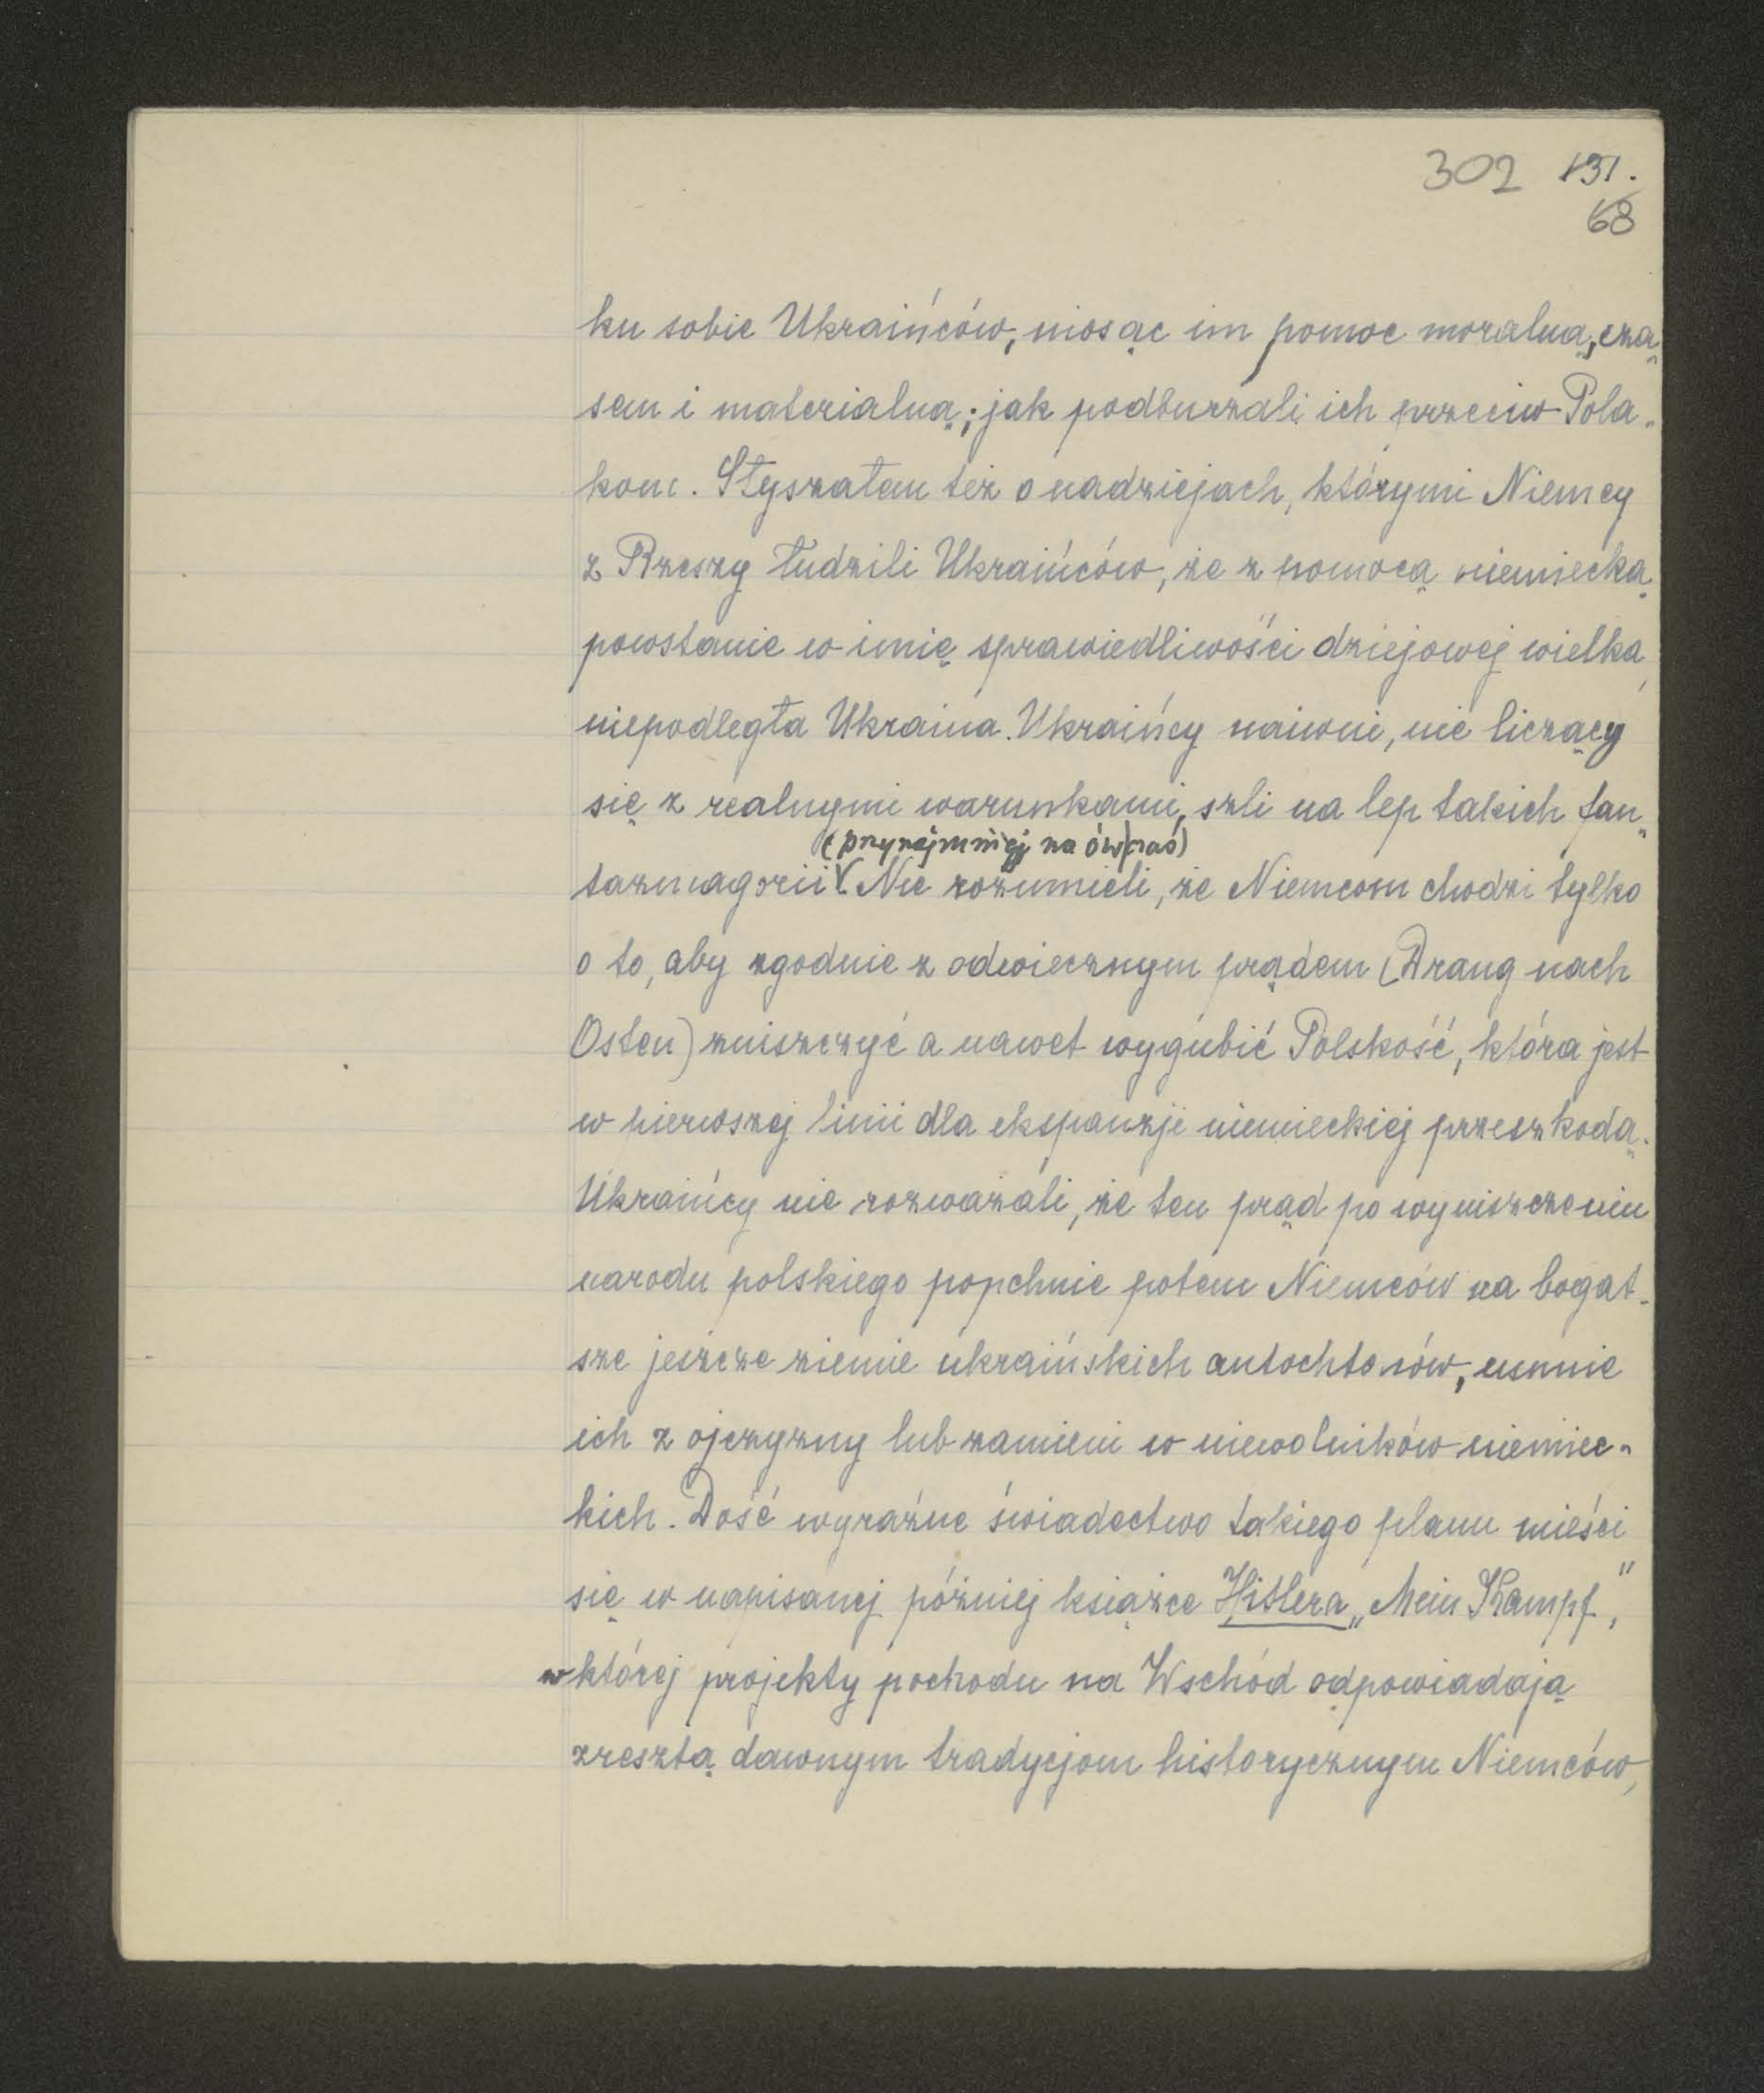 302 131.
68
ku sobie Ukraińców, niosąc im pomoc moralną, cza„
sem i materialną; jak podburzali ich przeciw Pola„
kom. Słyszałem też o nadziejach, którymi Niemcy
z Rzeszy łudzili Ukraińców, że z pomocą niemiecką
powstanie w imię sprawiedliwości dziejowej wielka,
niepodległa Ukraina. Ukraińcy naiwni, nie liczący
się z realnymi warunkami, szli na lep takich fan„
(przynajmniej na ówczas)
tazmagorii. Nie rozumieli, że Niemcom chodzi tylko
o to, aby zgodnie z odwiecznym prądem (Drang nach
Osten) zniszczyć a nawet wygubić Polskość, która jest
w pierwszej linii dla ekspanzji niemieckiej przeszkodą.
Ukraińcy nie rozważali, że ten prąd po wyniszczeniu
narodu polskiego popchnie potem Niemców na bogat-
sze jeszcze ziemie ukraińskich autochtonów, usunie
ich z ojczyzny lub zamieni w niewolników niemiec„
kich. Dość wyraźne świadectwo takiego planu mieści
się w napisanej później książce Hitlera „Mein Kampf",
w której projekty pochodu na Wschód odpowiadają
zresztą dawnym tradycjom historycznym Niemców,